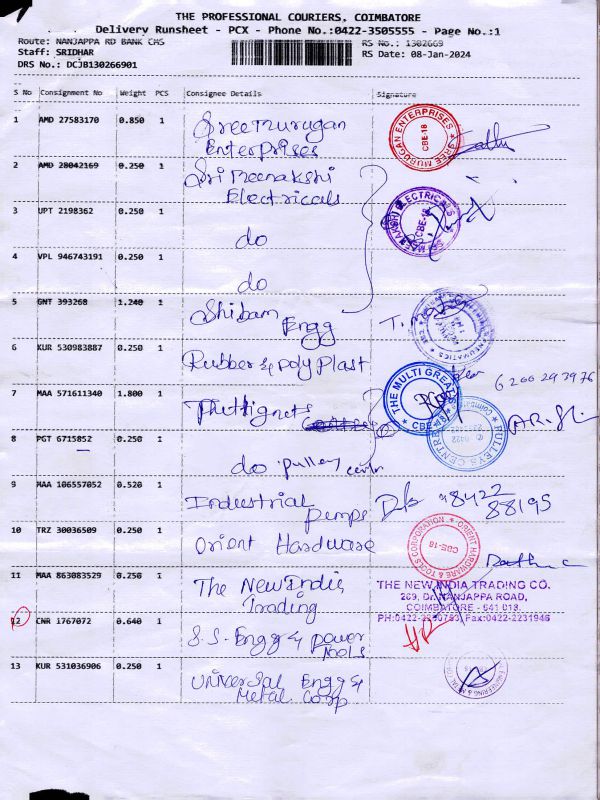 THE PROFESSIONAL COURIERS, COIMBATORE
Delivery Runsheet - PCX - Phone No.:0422-3505555 - Page No.:1
Route: NANJAPPA RD BANK CMS RS No.: 1302669
Staff: SRIDHAR RS Date: 08-Jan-2024
DRS No.: DCJB130266901
S No Consignment No Weight PCS Consignee Details Signature
1 AMD 27583170 0.850 1 Sree Murugan
Enterprises
SREE MURUGAN ENTERPRISES
CBE-18
2 AMD 28042169 0.250 1 Sri Meenakshi
Electricals
3 UPT 2198362 0.250 1 do
CBE-18
4 VPL 946743191 0.250 1 do
5 GNT 393268 1.240 1 Shibam
Engg
6 KUR 530983887 0.250 1 Rubber & Poly Plast
7 MAA 571611340 1.800 1
THE MULTI GREASE
CBE-18
6200293976
8 PGT 6715852 0.250 1 do pulley
PULLEYS CENTRE
9 MAA 106557052 0.520 1 Industrial
Pumps
98422
88195
10 TRZ 30036509 0.250 1 Orient Hardware
ORIENT HARDWARE & TOOLS CORPORATION
CBE-18
11 MAA 863083529 0.250 1 The New Indis
Trading
THE NEW INDIA TRADING CO.
269, Dr. NANJAPPA ROAD,
COIMBATORE - 641 018.
Fax:0422-2231946
12 CNR 1767072 0.640 1 S.S. Engg & Power
Tools
13 KUR 531036906 0.250 1 Universal Engg &
Metal Corp